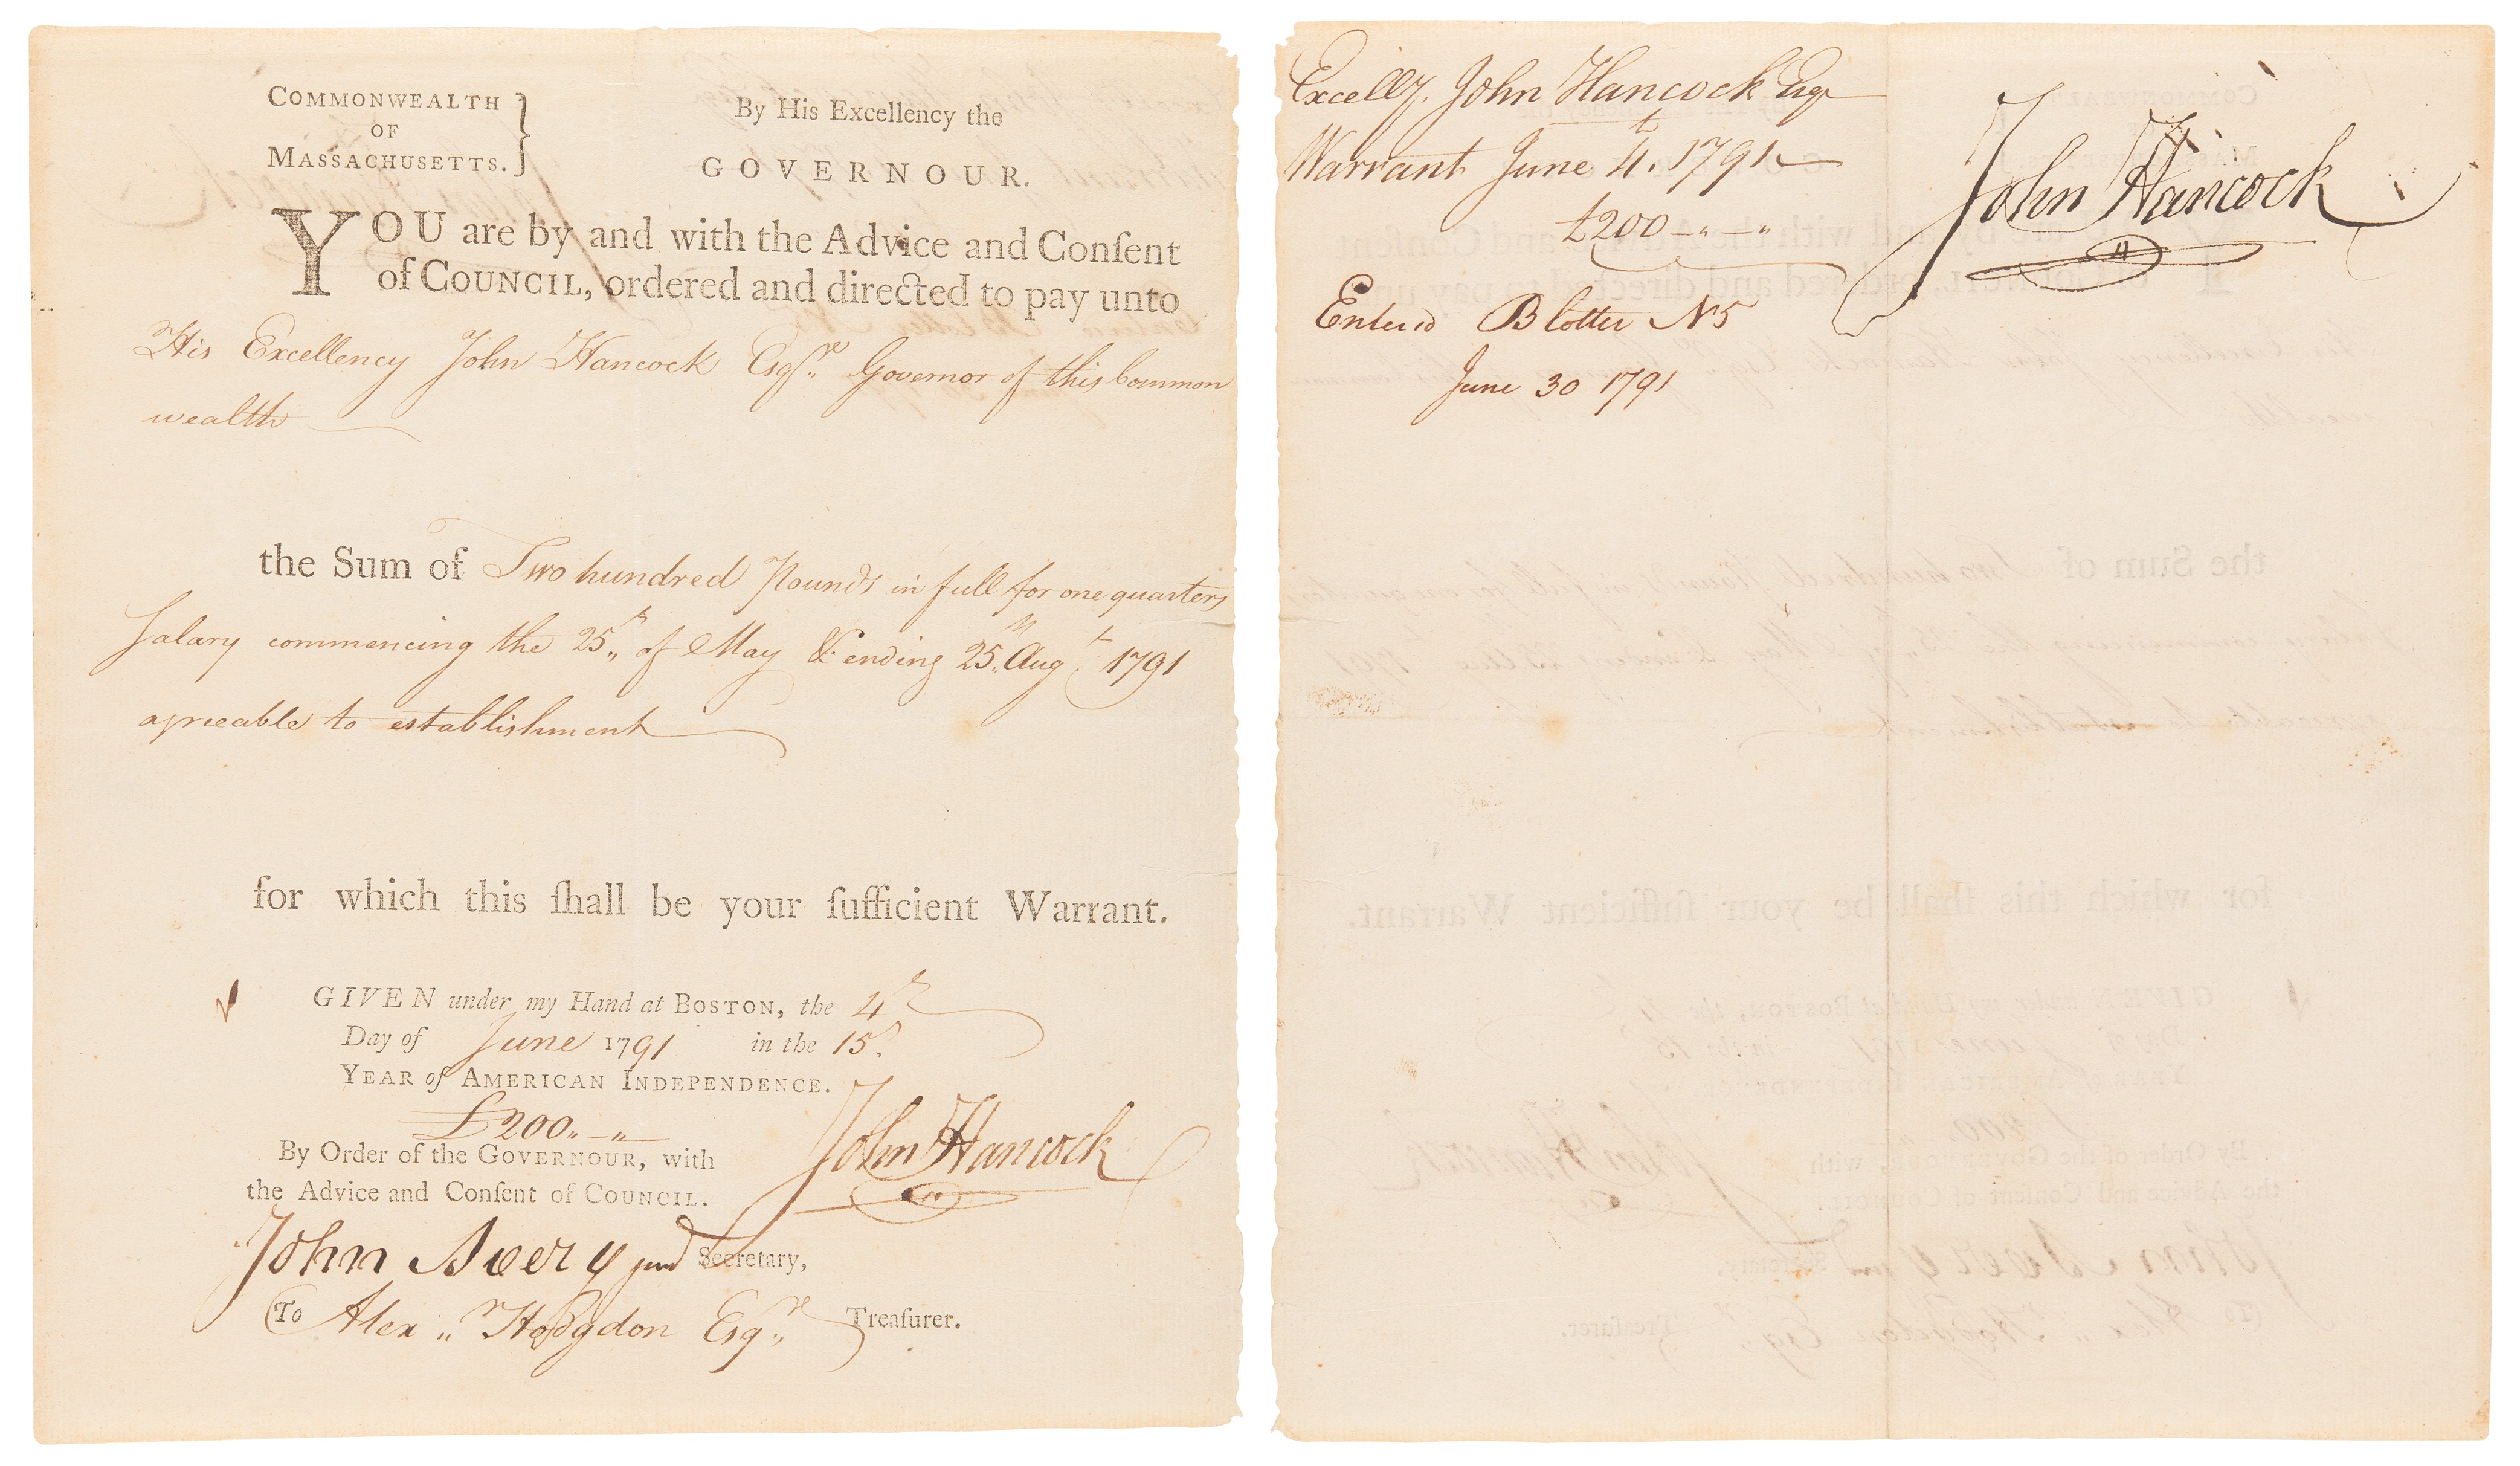 COMMONWEALTH
OF
MASSACHUSETTS.
By His Excellency the
GOVERNOUR.
YOU are by and with the Advice and Conſent
of COUNCIL, ordered and directed to pay unto
His Excellency John Hancock Esqre. Governor of this Common
wealth
the Sum of Two hundred Pounds in full for one quarters
Salary commencing the 25th of May & ending 25th Augt. 1791
agreeable to establishment
for which this ſhall be your ſufficient Warrant.
GIVEN under my Hand at BOSTON, the 4th
Day of June 1791 in the 15th
YEAR of AMERICAN INDEPENDENCE.
£200 „ – „
By Order of the GOVERNOUR, with
the Advice and Conſent of COUNCIL.
John Hancock
John Avery junr Secretary,
To Alexr Hodgdon Esqre Treaſurer.
Excelly. John Hancock Esqr
Warrant June 4th. 1791
£200 – „ – „
Entered Blotter No 5
June 30 1791
John Hancock